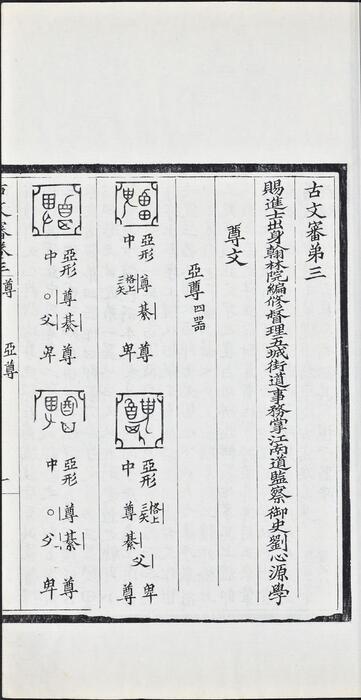 古文審第三
賜進士出身翰林院編修督理五城街道事務掌江南道監察御史劉心源學
尊文
亞尊四器
亞形中
格上三矢
尊綦
尊卑
亞形中
格上三矢
尊綦父
卑尊
亞形中
尊綦
○父
尊卑
亞形中
尊綦
○父
尊卑
古文審卷三 尊 亞尊 一